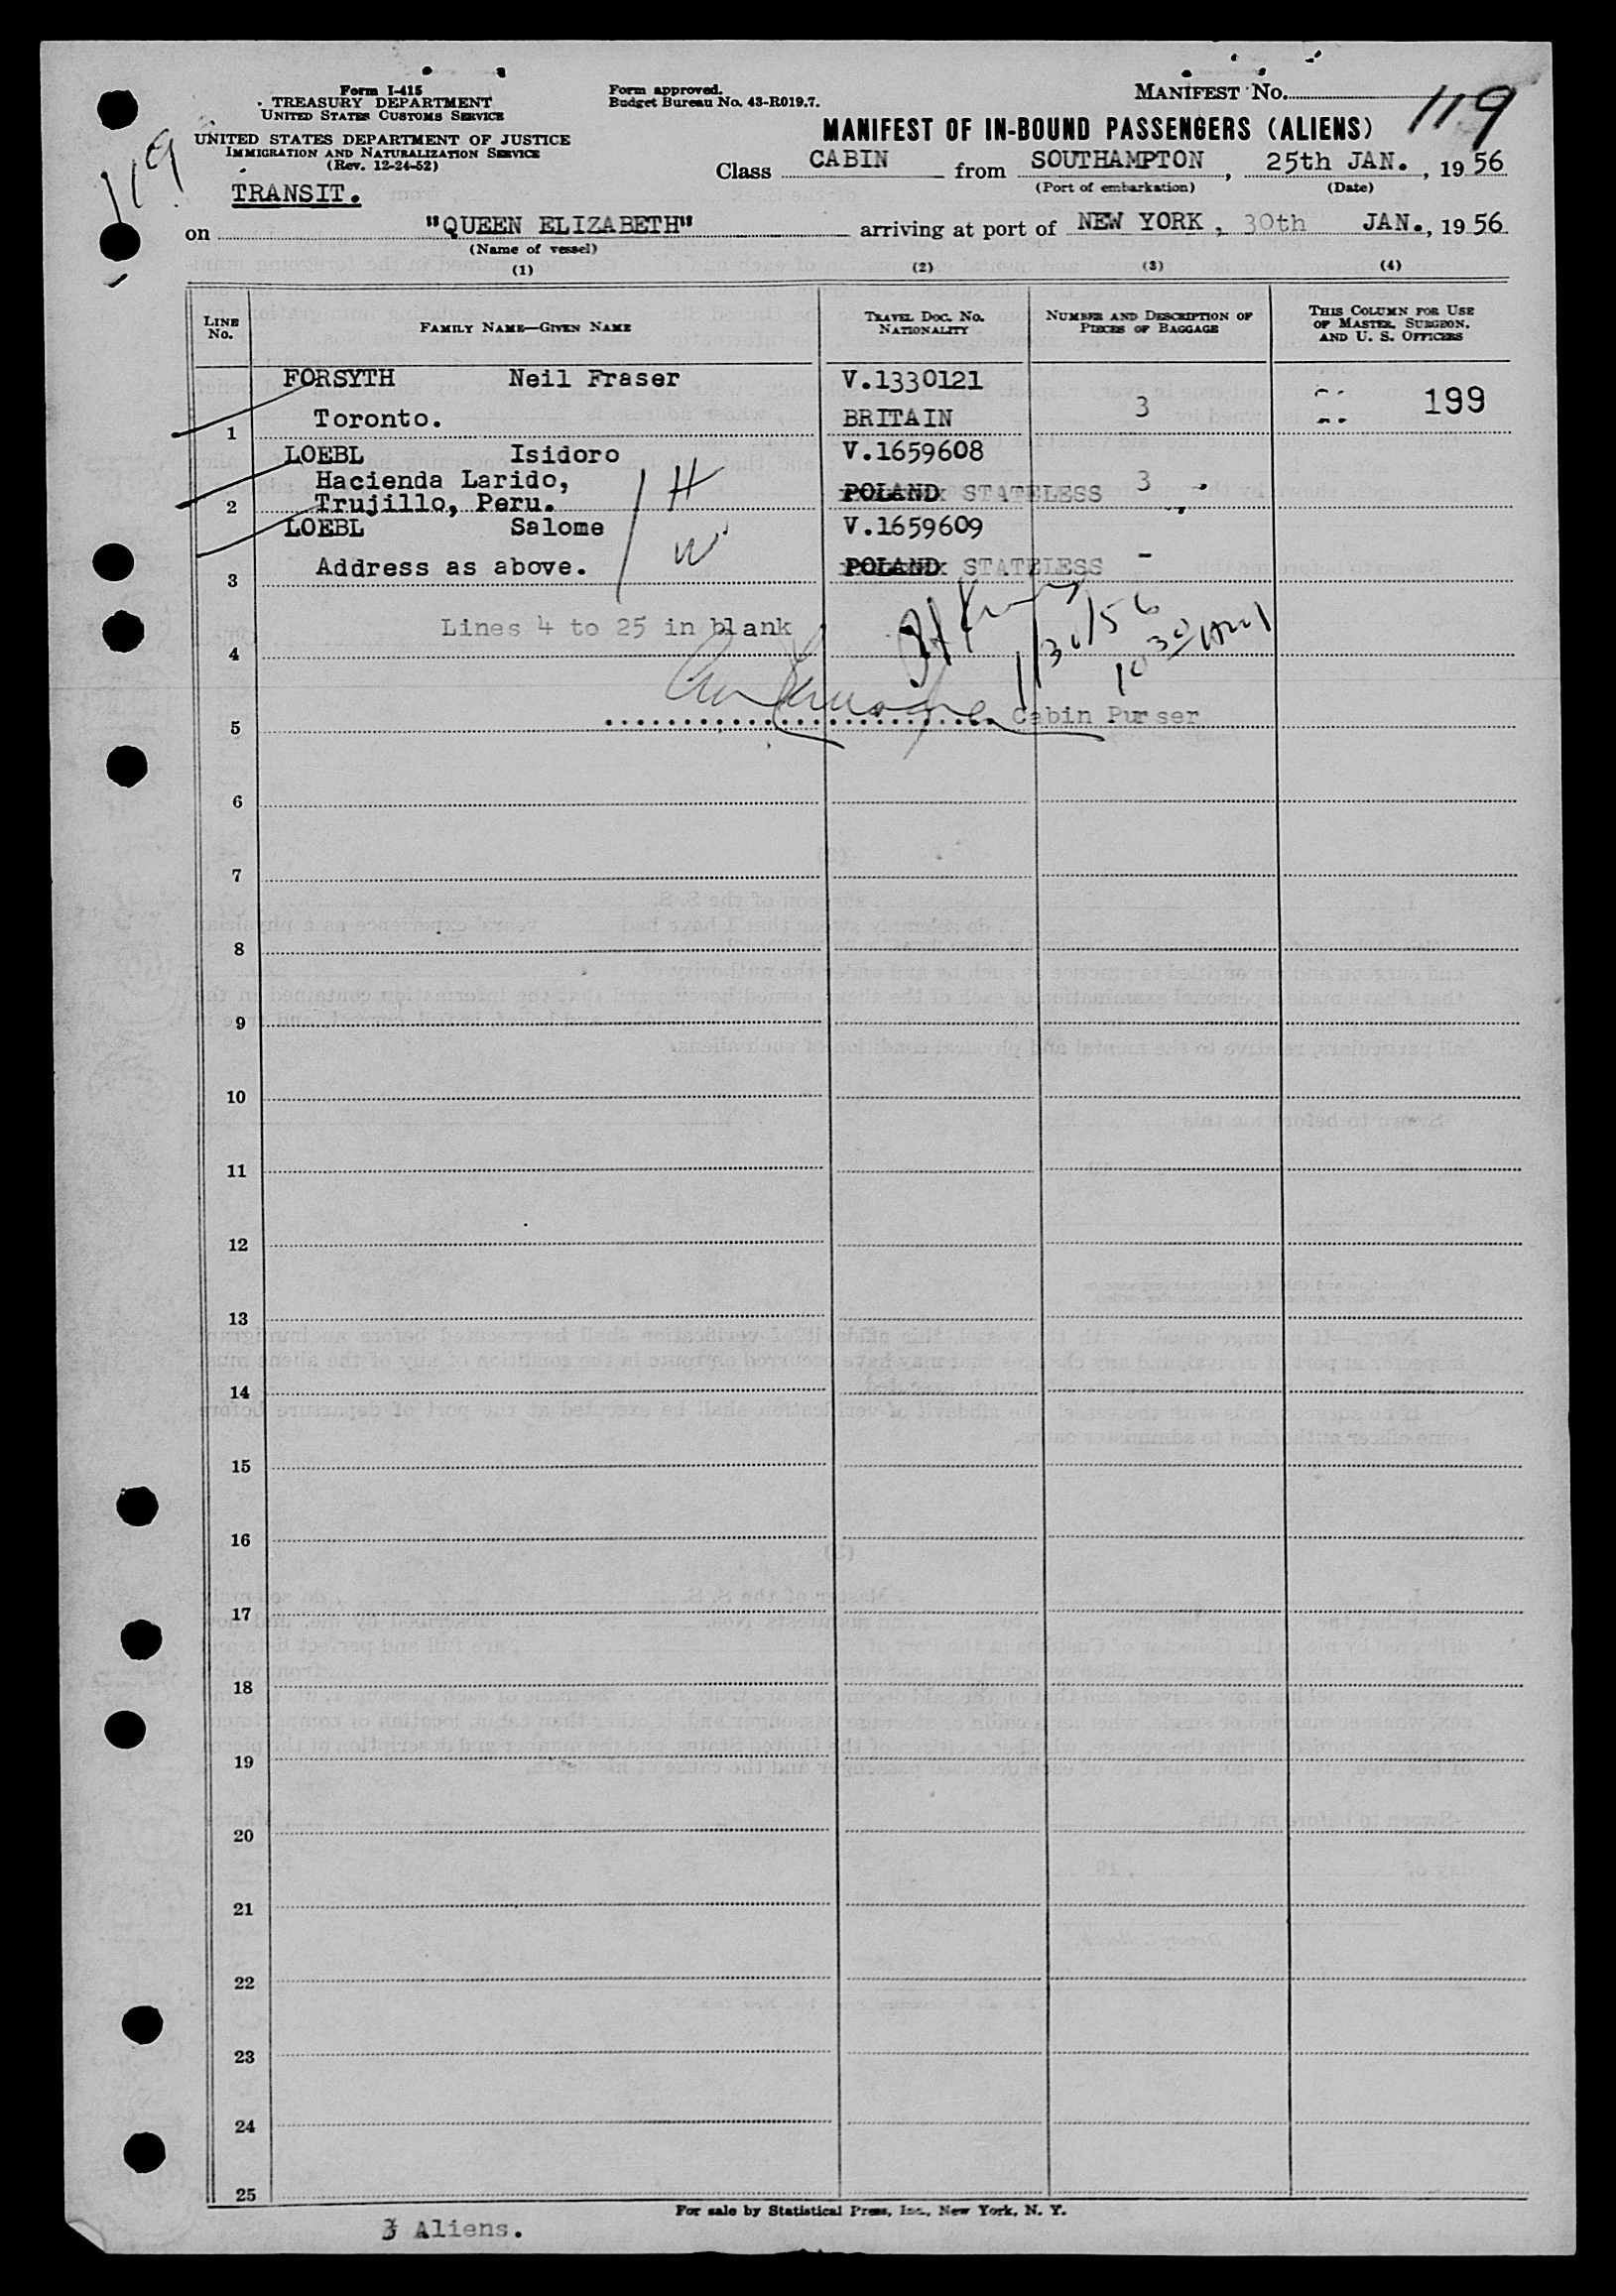 Form I-415
TREASURY DEPARTMENT
UNITED STATES CUSTOMS SERVICE
UNITED STATES DEPARTMENT OF JUSTICE
IMMIGRATION AND NATURALIZATION SERVICE
(Rev. 12-24-52)
Form approved.
Budget Bureau No. 43-R019.7.
MANIFEST No. 119
119
MANIFEST OF IN-BOUND PASSENGERS (ALIENS)
Class CABIN from SOUTHAMPTON, 25th JAN., 1956
(Port of embarkation) (Date)
TRANSIT.
on "QUEEN ELIZABETH" arriving at port of NEW YORK, 30th JAN., 1956
(Name of vessel)
(1) (2) (3) (4)
LINE No. FAMILY NAME—GIVEN NAME TRAVEL DOC. No. NATIONALITY NUMBER AND DESCRIPTION OF PIECES OF BAGGAGE THIS COLUMN FOR USE OF MASTER, SURGEON, AND U. S. OFFICERS
FORSYTH Neil Fraser V.1330121
1 Toronto. BRITAIN 3 199
LOEBL Isidoro V.1659608
Hacienda Larido, H
2 Trujillo, Peru. POLAND STATELESS 3
LOEBL Salome V.1659609
W
3 Address as above. POLAND STATELESS -
Lines 4 to 25 in blank
1/30/56
10 30 AM
4
5 Cabin Purser
6
7
8
9
10
11
12
13
14
15
16
17
18
19
20
21
22
23
24
25
For sale by Statistical Press, Inc., New York, N. Y.
3 Aliens.